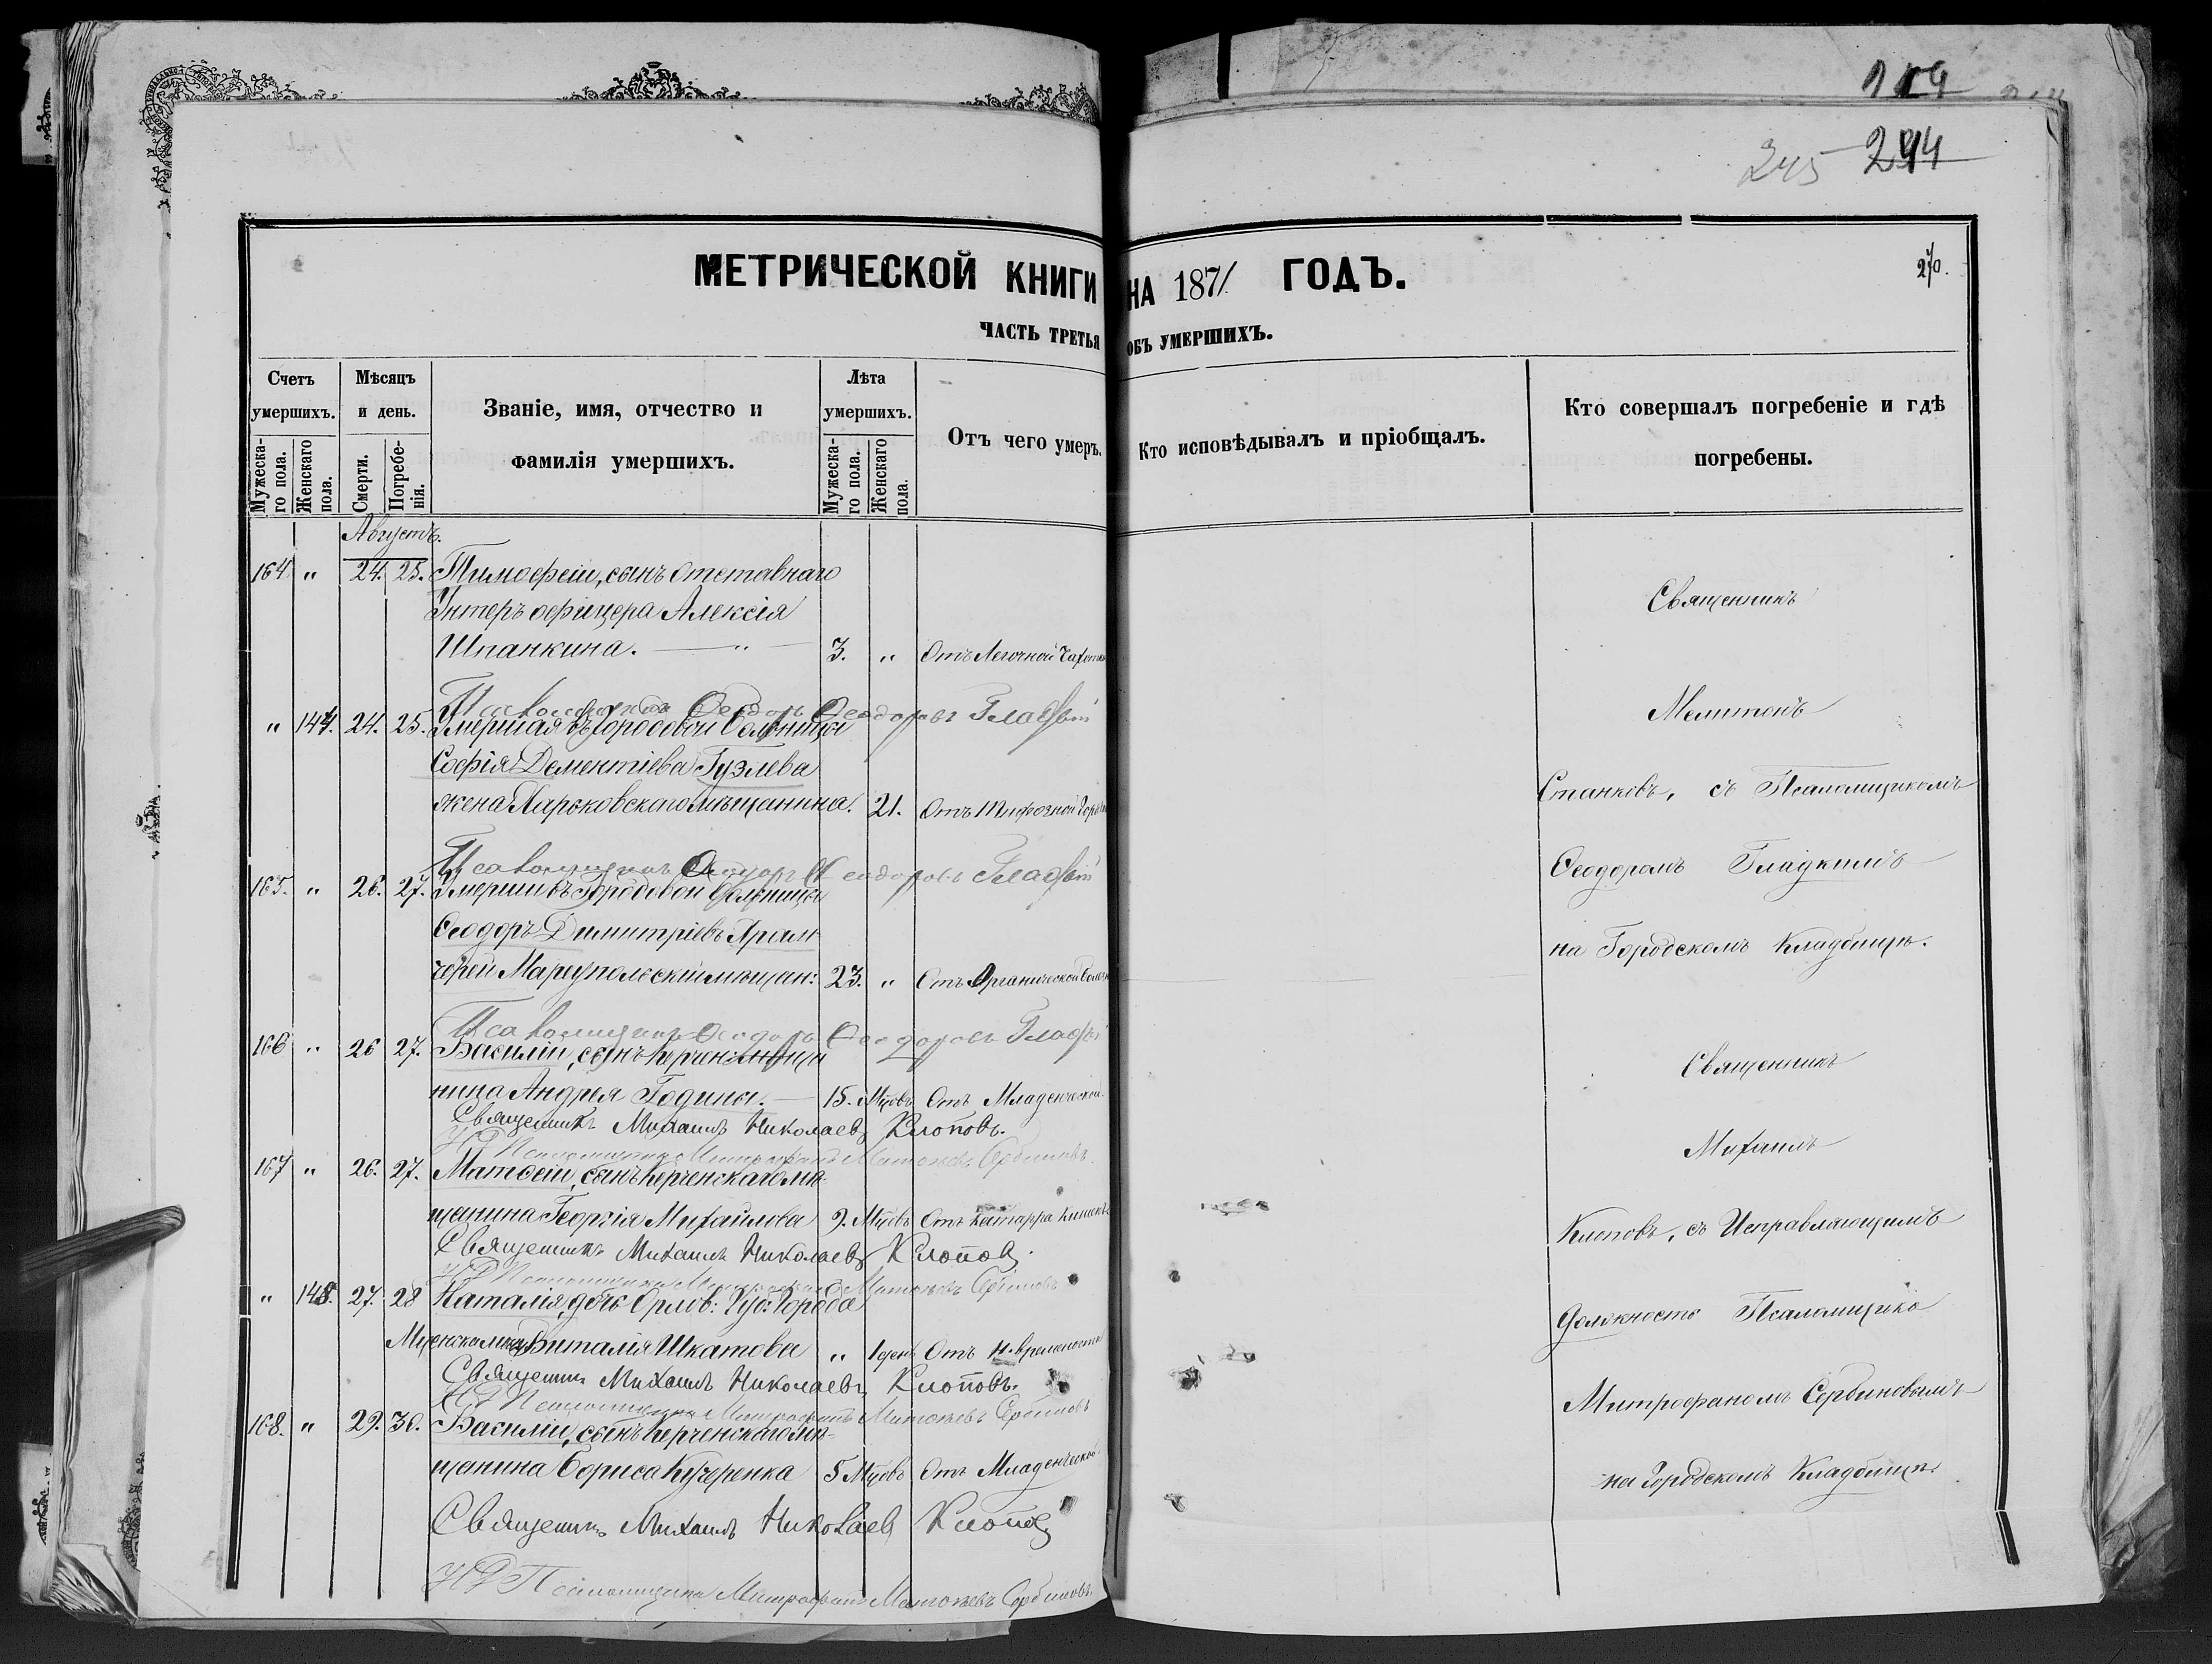 119
245 244
МЕТРИЧЕСКОЙ КНИГИ НА 1871 ГОДЪ.
270.
ЧАСТЬ ТРЕТЬЯ ОБЪ УМЕРШИХЪ.
Счетъ умершихъ.
Мужеска-го пола.
Женскаго пола.
Мѣсяцъ и день.
Смерти.
Погребе-нія.
Званіе, имя, отчество и
фамилія умершихъ.
Лѣта умершихъ.
Мужеска-го пола.
Женскаго пола.
Отъ чего умеръ.
Кто исповѣдывалъ и пріобщалъ.
Кто совершалъ погребеніе и гдѣ
погребены.
Августъ.
164 " 24. 25. Тимофей, сынъ отставнаго
Унтеръ офицера Алексія
Шпанкина. — " — 3. " Отъ Легочной
Псаломщикъ Ѳеодоръ Ѳеодоровъ Гладкій
" 147. 24. 25. Умершая въ Городовой Больницы
Софія Дементіева Гузлева
жена Харьковскаго мѣщанина. 21. Отъ Тифозной
Псаломщикъ Ѳеодоръ Ѳеодоровъ Гладкій
165. " 26. 27. Умершій въ Городовой Больницы
Ѳеодоръ Димитріевъ
Мареупольскій мѣщан: 23. " Отъ Органической
Псаломщикъ Ѳеодоръ Ѳеодоровъ Гладкій
166 " 26 27. Василій, сынъ
нина Андрея Годины. — 15. Мцовъ Отъ Младенческой
Священникъ Михаилъ Николаевъ Клоповъ.
И Д Псаломщика Митрофанъ Матѳѣевъ Сербиновъ
167 " 26. 27. Матѳей, сынъ Керченскаго мѣ-
щанина Георгія Михайлова 9. Мцовъ Отъ Катарра
Священникъ Михаилъ Николаевъ Клоповъ.
И Д Псаломщика Митрофанъ Матѳѣевъ Сербиновъ
" 148. 27. 28 Наталія, дочь Орлов: Губ: Города
Виталія Шкатова " 1 день Отъ
Священникъ Михаилъ Николаевъ Клоповъ.
И Д Псаломщика Митрофанъ Матѳѣевъ Сербиновъ
168. " 29. 30. Василій, сынъ Керченскаго мѣ-
щанина Бориса Кучеренка 5 Мцовъ Отъ Младенческой
Священникъ Михаилъ Николаевъ Клоповъ
И Д Псаломщика Митрофанъ Матѳѣевъ Сербиновъ
Священникъ
Мелитонъ
Станковъ, съ Псаломщикомъ
Ѳеодоромъ Гладкимъ
на Городскомъ Кладбищѣ.
Священникъ
Михаилъ
Клоповъ, съ Исправляющимъ
должность Псаломщика
Митрофаномъ Сербиновымъ
на Городскомъ Кладбищѣ.